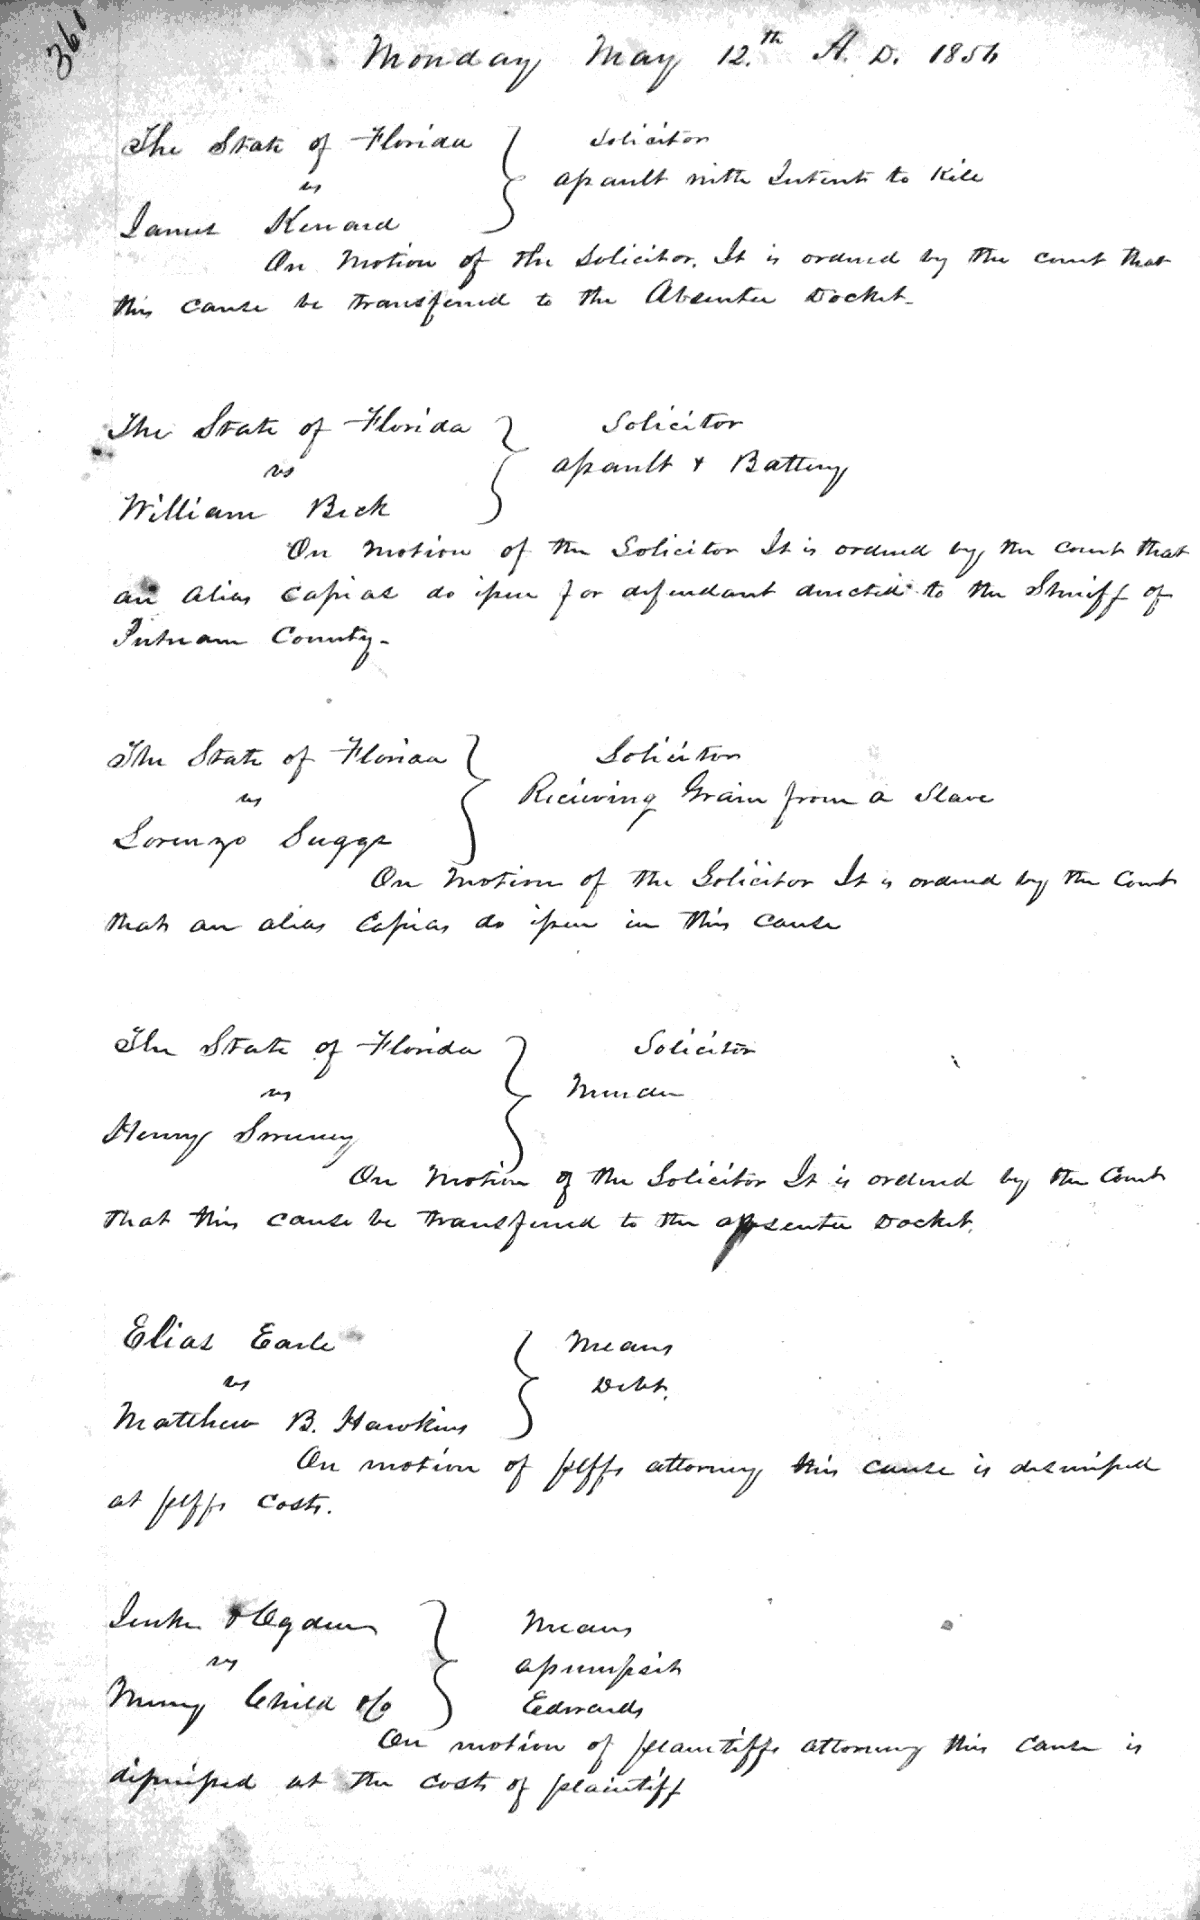 360
Monday May 12.th A. D. 1856
The State of Florida Solicitor
vs Assault with Intent to Kill
James Kenard
On Motion of the Solicitor. It is ordered by the court that
this cause be transferred to the Absentee Docket-
The State of Florida Solicitor
vs Assault & Battery
William Beck
On Motion of the Solicitor It is ordered by the court that
an alias capias do issue for defendant directed to the Sheriff of
Putnam County-
The State of Florida Solicitor
vs Receiving Grain from a Slave
Lorenzo Suggs
On Motion of the Solicitor It is ordered by the Court
that an alias Capias do issue in this cause
The State of Florida Solicitor
vs Murder
Henry Sweeney
On Motion of the Solicitor It is ordered by the Court
that this cause be transferred to the absentee Docket.
Elias Earle Means
vs Debt.
Matthew B. Hawkins
On motion of plffs attorney this cause is dismissed
at plffs costs.
& Ogden Means
vs assumpsit
Child &Co Edwards
On motion of plaintiffs attorney this cause is
dismissed at the costs of plaintiff